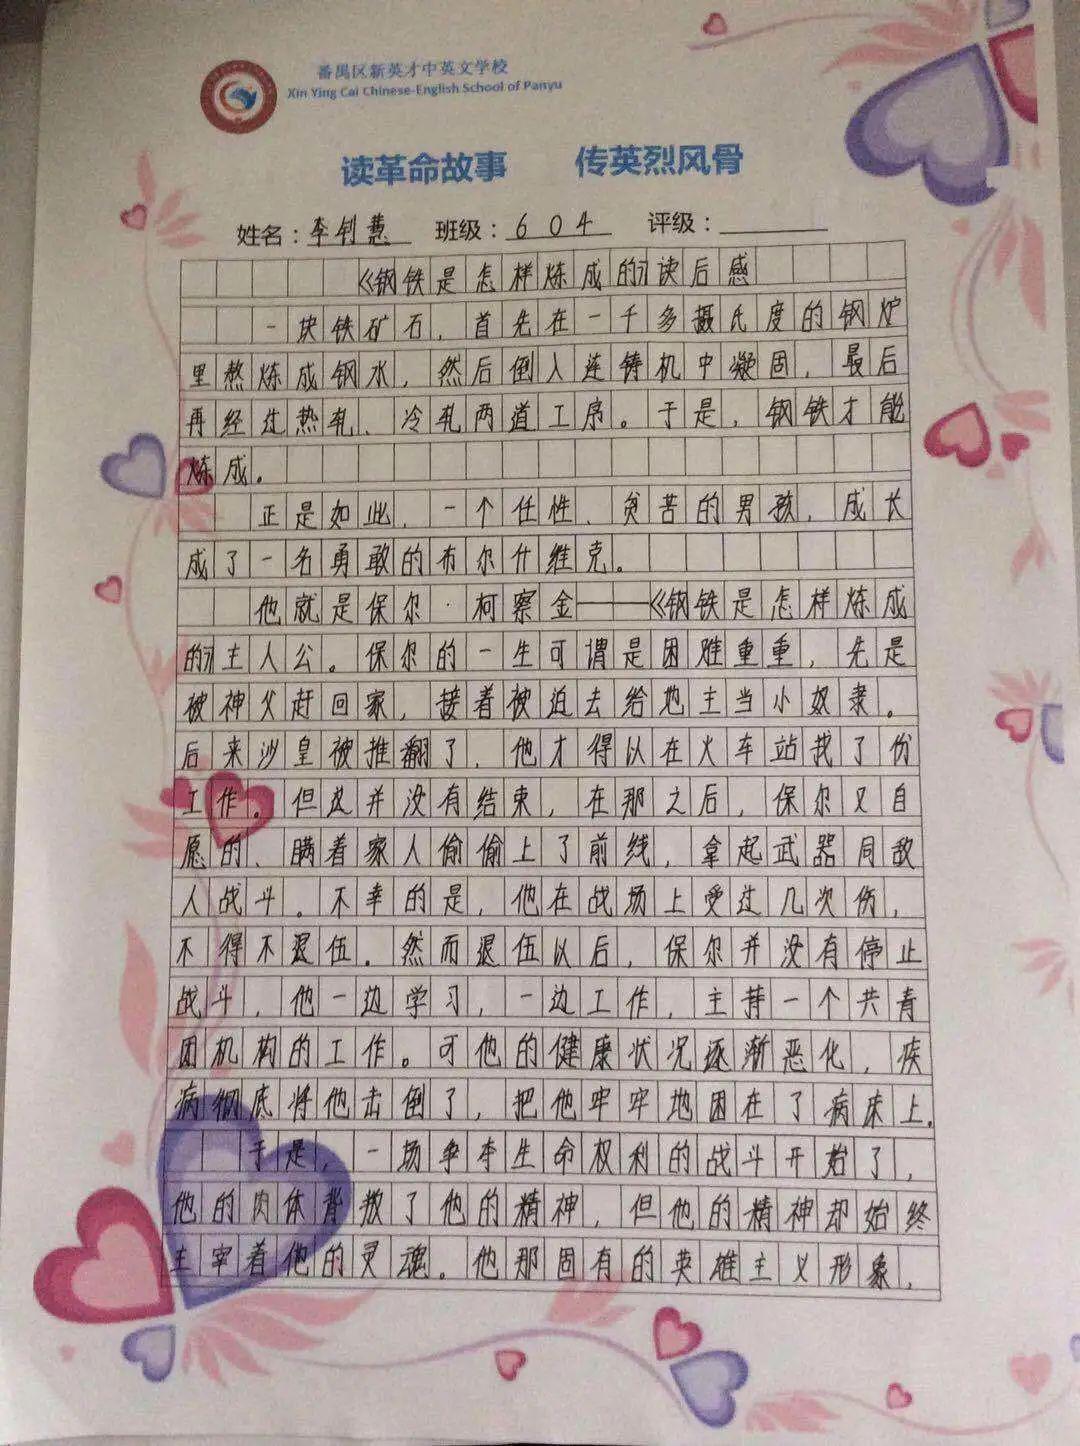 番禺区新英才中英文学校
Xin Ying Cai Chinese-English School of Panyu
读革命故事 传英烈风骨
姓名：李钊慧 班级：604 评级：
《钢铁是怎样炼成的》读后感
一块铁矿石，首先在一千多摄氏度的钢炉
里熬炼成钢水，然后倒入连铸机中凝固，最后
再经过热轧、冷轧两道工序。于是，钢铁才能
炼成。
正是如此，一个任性、贫苦的男孩，成长
成了一名勇敢的布尔什维克。
他就是保尔·柯察金——《钢铁是怎样炼成
的》主人公。保尔的一生可谓是困难重重，先是
被神父赶回家，接着被迫去给地主当小奴隶。
后来沙皇被推翻了，他才得以在火车站找了份
工作。但这并没有结束，在那之后，保尔又自
愿的、瞒着家人偷偷上了前线，拿起武器同敌
人战斗。不幸的是，他在战场上受过几次伤，
不得不退伍。然而退伍以后，保尔并没有停止
战斗，他一边学习，一边工作，主持一个共青
团机构的工作。可他的健康状况逐渐恶化，疾
病彻底将他击倒了，把他牢牢地困在了病床上。
于是，一场争夺生命权利的战斗开始了，
他的肉体背叛了他的精神，但他的精神却始终
主宰着他的灵魂。他那固有的英雄主义形象，